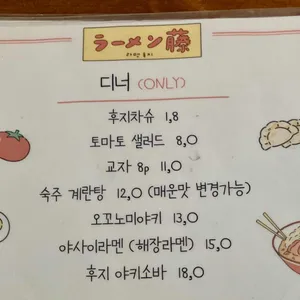 ラーメン藤
라멘 후지
디너 (ONLY)
후지차슈 1,8
토마토 샐러드 8,0
교자 8p 11,0
숙주 계란탕 12,0 (매운맛 변경가능)
오꼬노미야키 13,0
야사이라멘 (해장라멘) 15,0
후지 야키소바 18,0